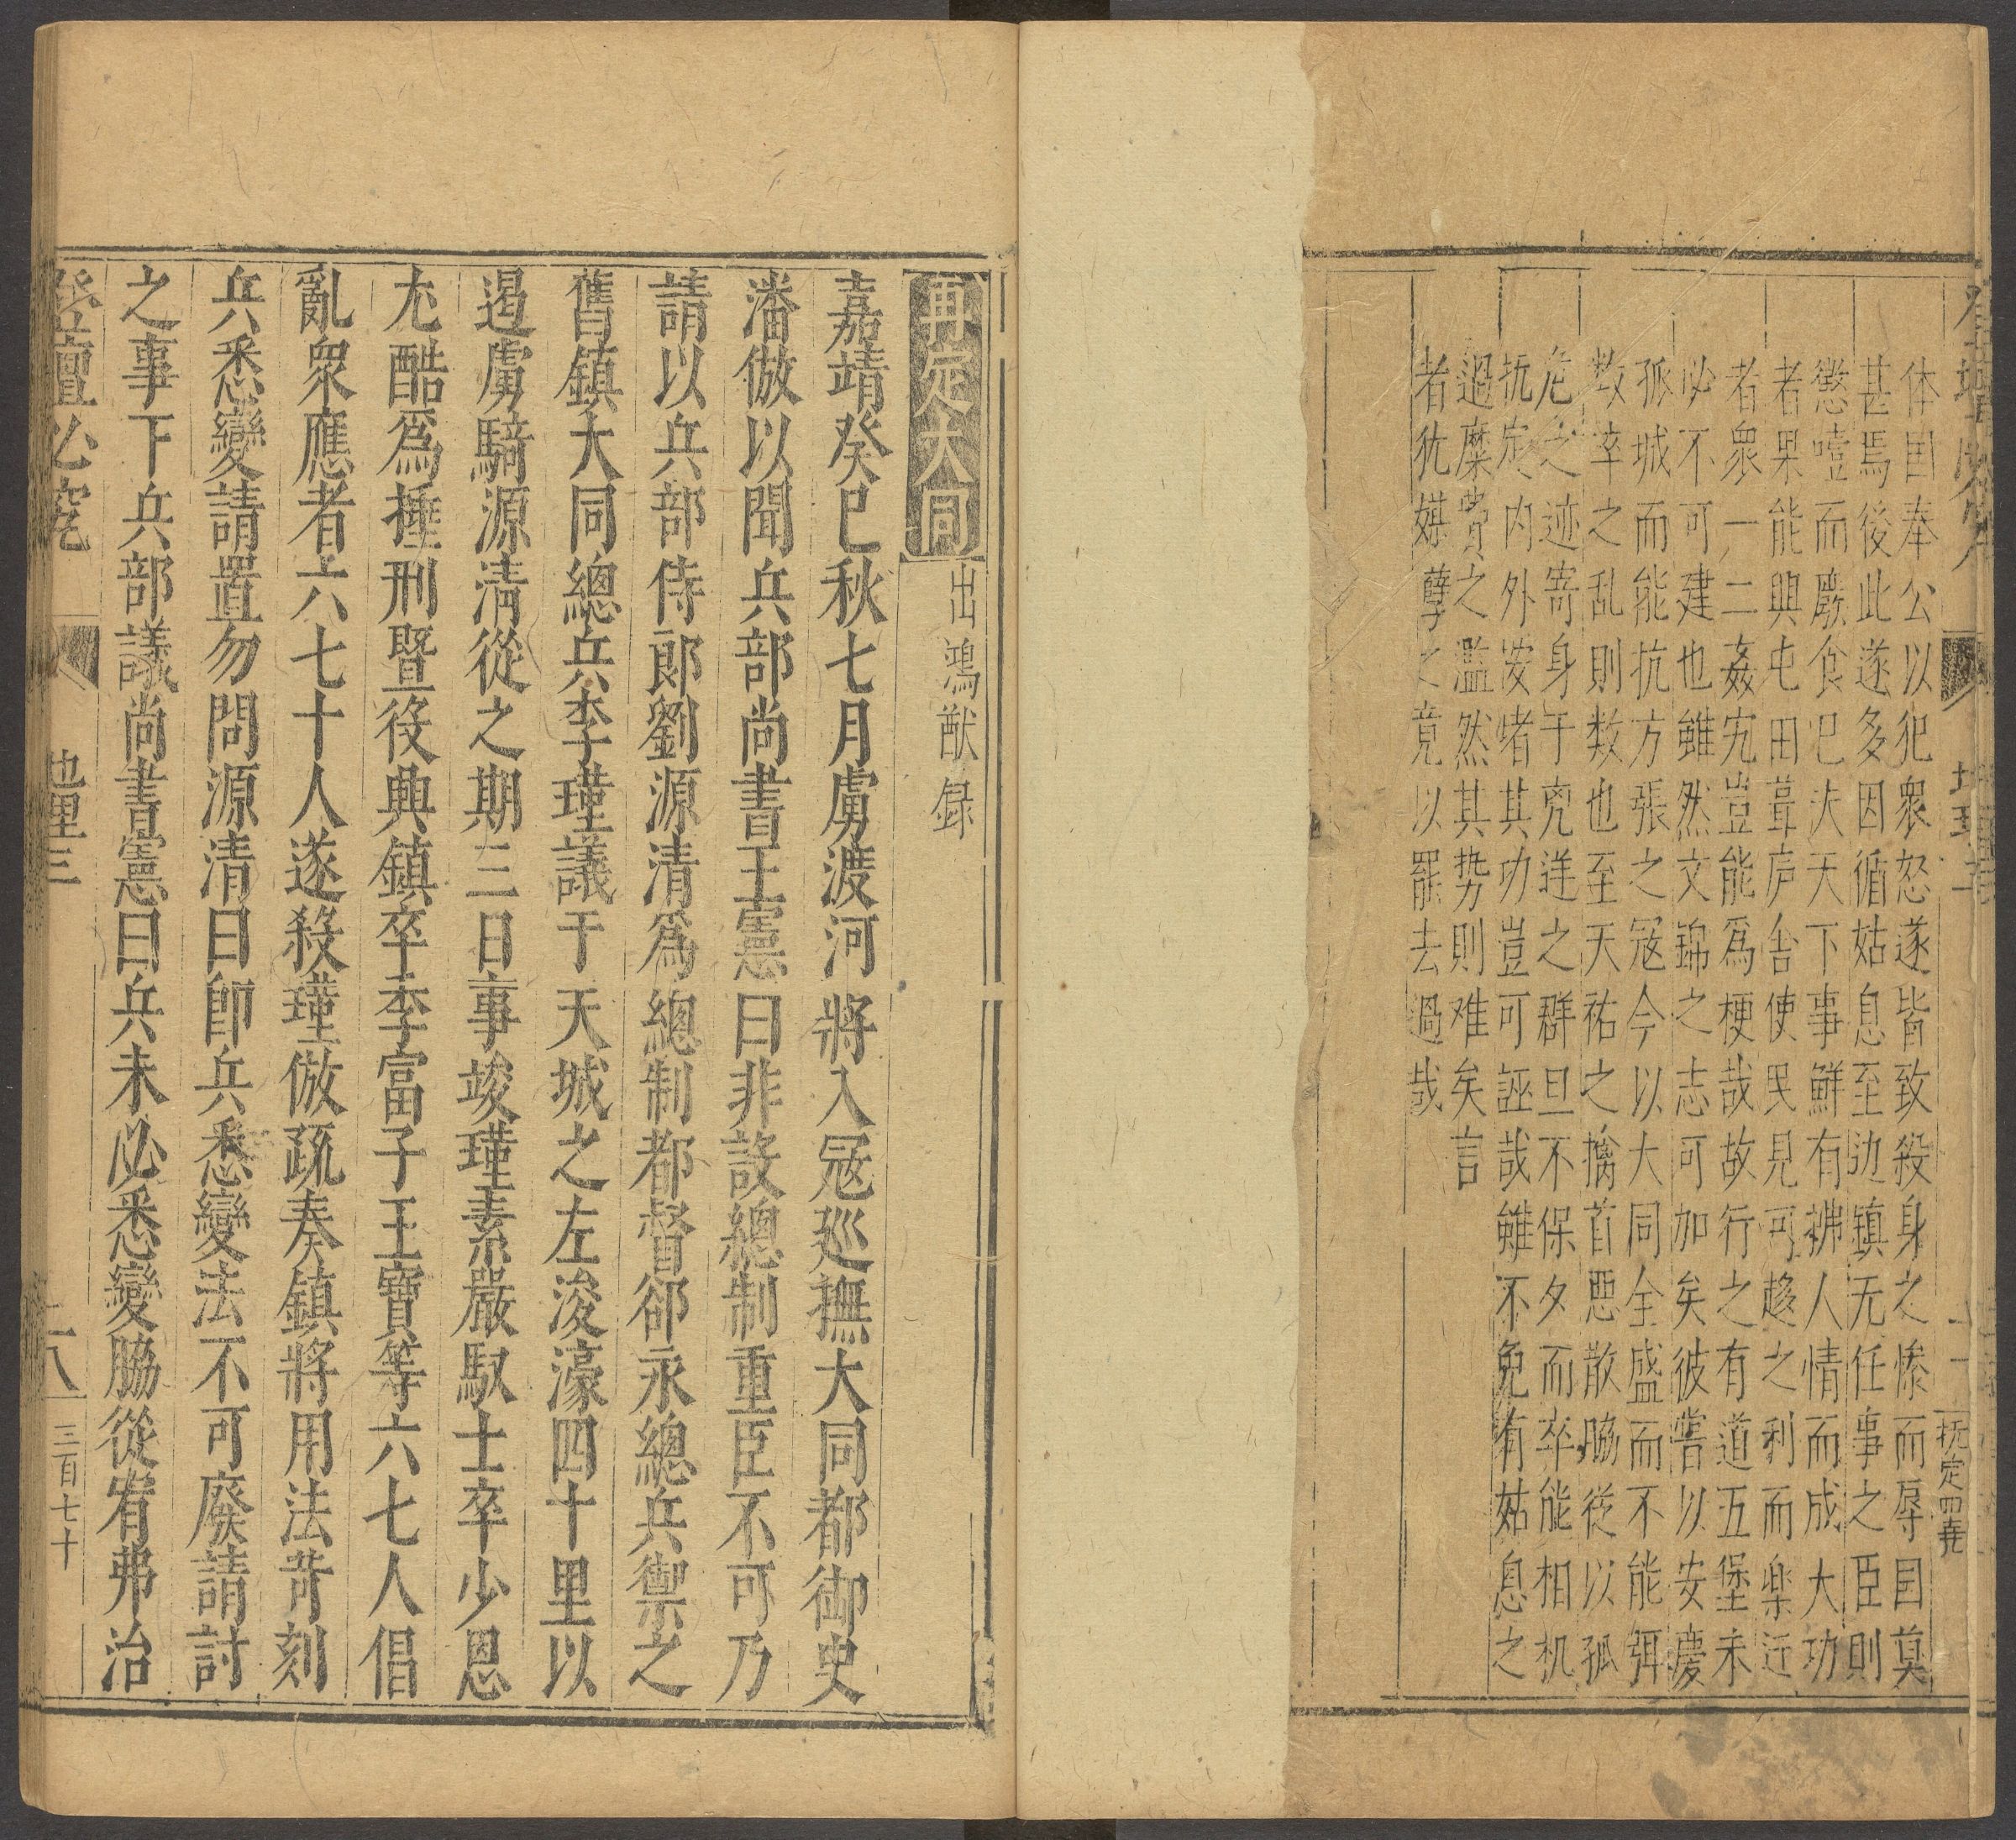 体囯奉公以犯衆怒遂皆致殺身之惨而辱囯莫
甚焉後此遂多因循姑息至边鎮无任事之臣則
懲噎而廢食已夫天下事鮮有拂人情而成大功
者果能興屯田葺庐舍使民見可趍之利而樂迁
者衆一二姦宄豈能爲梗哉故行之有道五堡未
必不可建也雖然文錦之志可加矣彼嘗以安慶
孤城而能抗方張之冦今以大同全盛而不能弭
数卒之乱則数也至天祐之擒首惡散脇從以孤
危之迹寄身于兇逆之群旦不保夕而卒能相机
抚定内外浚啫其功豈可誣哉雖不免有姑息之
過縻賞之濫然其势則难矣言
者犹媒孽之竟以罷去過哉
抚定四尭
再定大同 出鴻猷録
嘉靖癸巳秋七月虜渡河將入冦巡撫大同都御史
潘倣以聞兵部尚書王憲曰非設總制重臣不可乃
請以兵部侍郎劉源清爲總制都督郤永總兵禦之
舊鎮大同總兵李瑾議于天城之左浚濠四十里以
遏虜騎源清從之期三日事竣瑾素嚴馭士卒少恩
尢酷爲捶刑暨役興鎮卒李富子王寶等六七人倡
亂衆應者六七十人遂殺瑾倣疏奏鎮將用法苛刻
兵悉變請置勿問源清曰卽兵悉變法不可廢請討
之事下兵部議尚書憲曰兵未必悉變脇從宥弗治
登壇必究 地里三 二八 三百七十